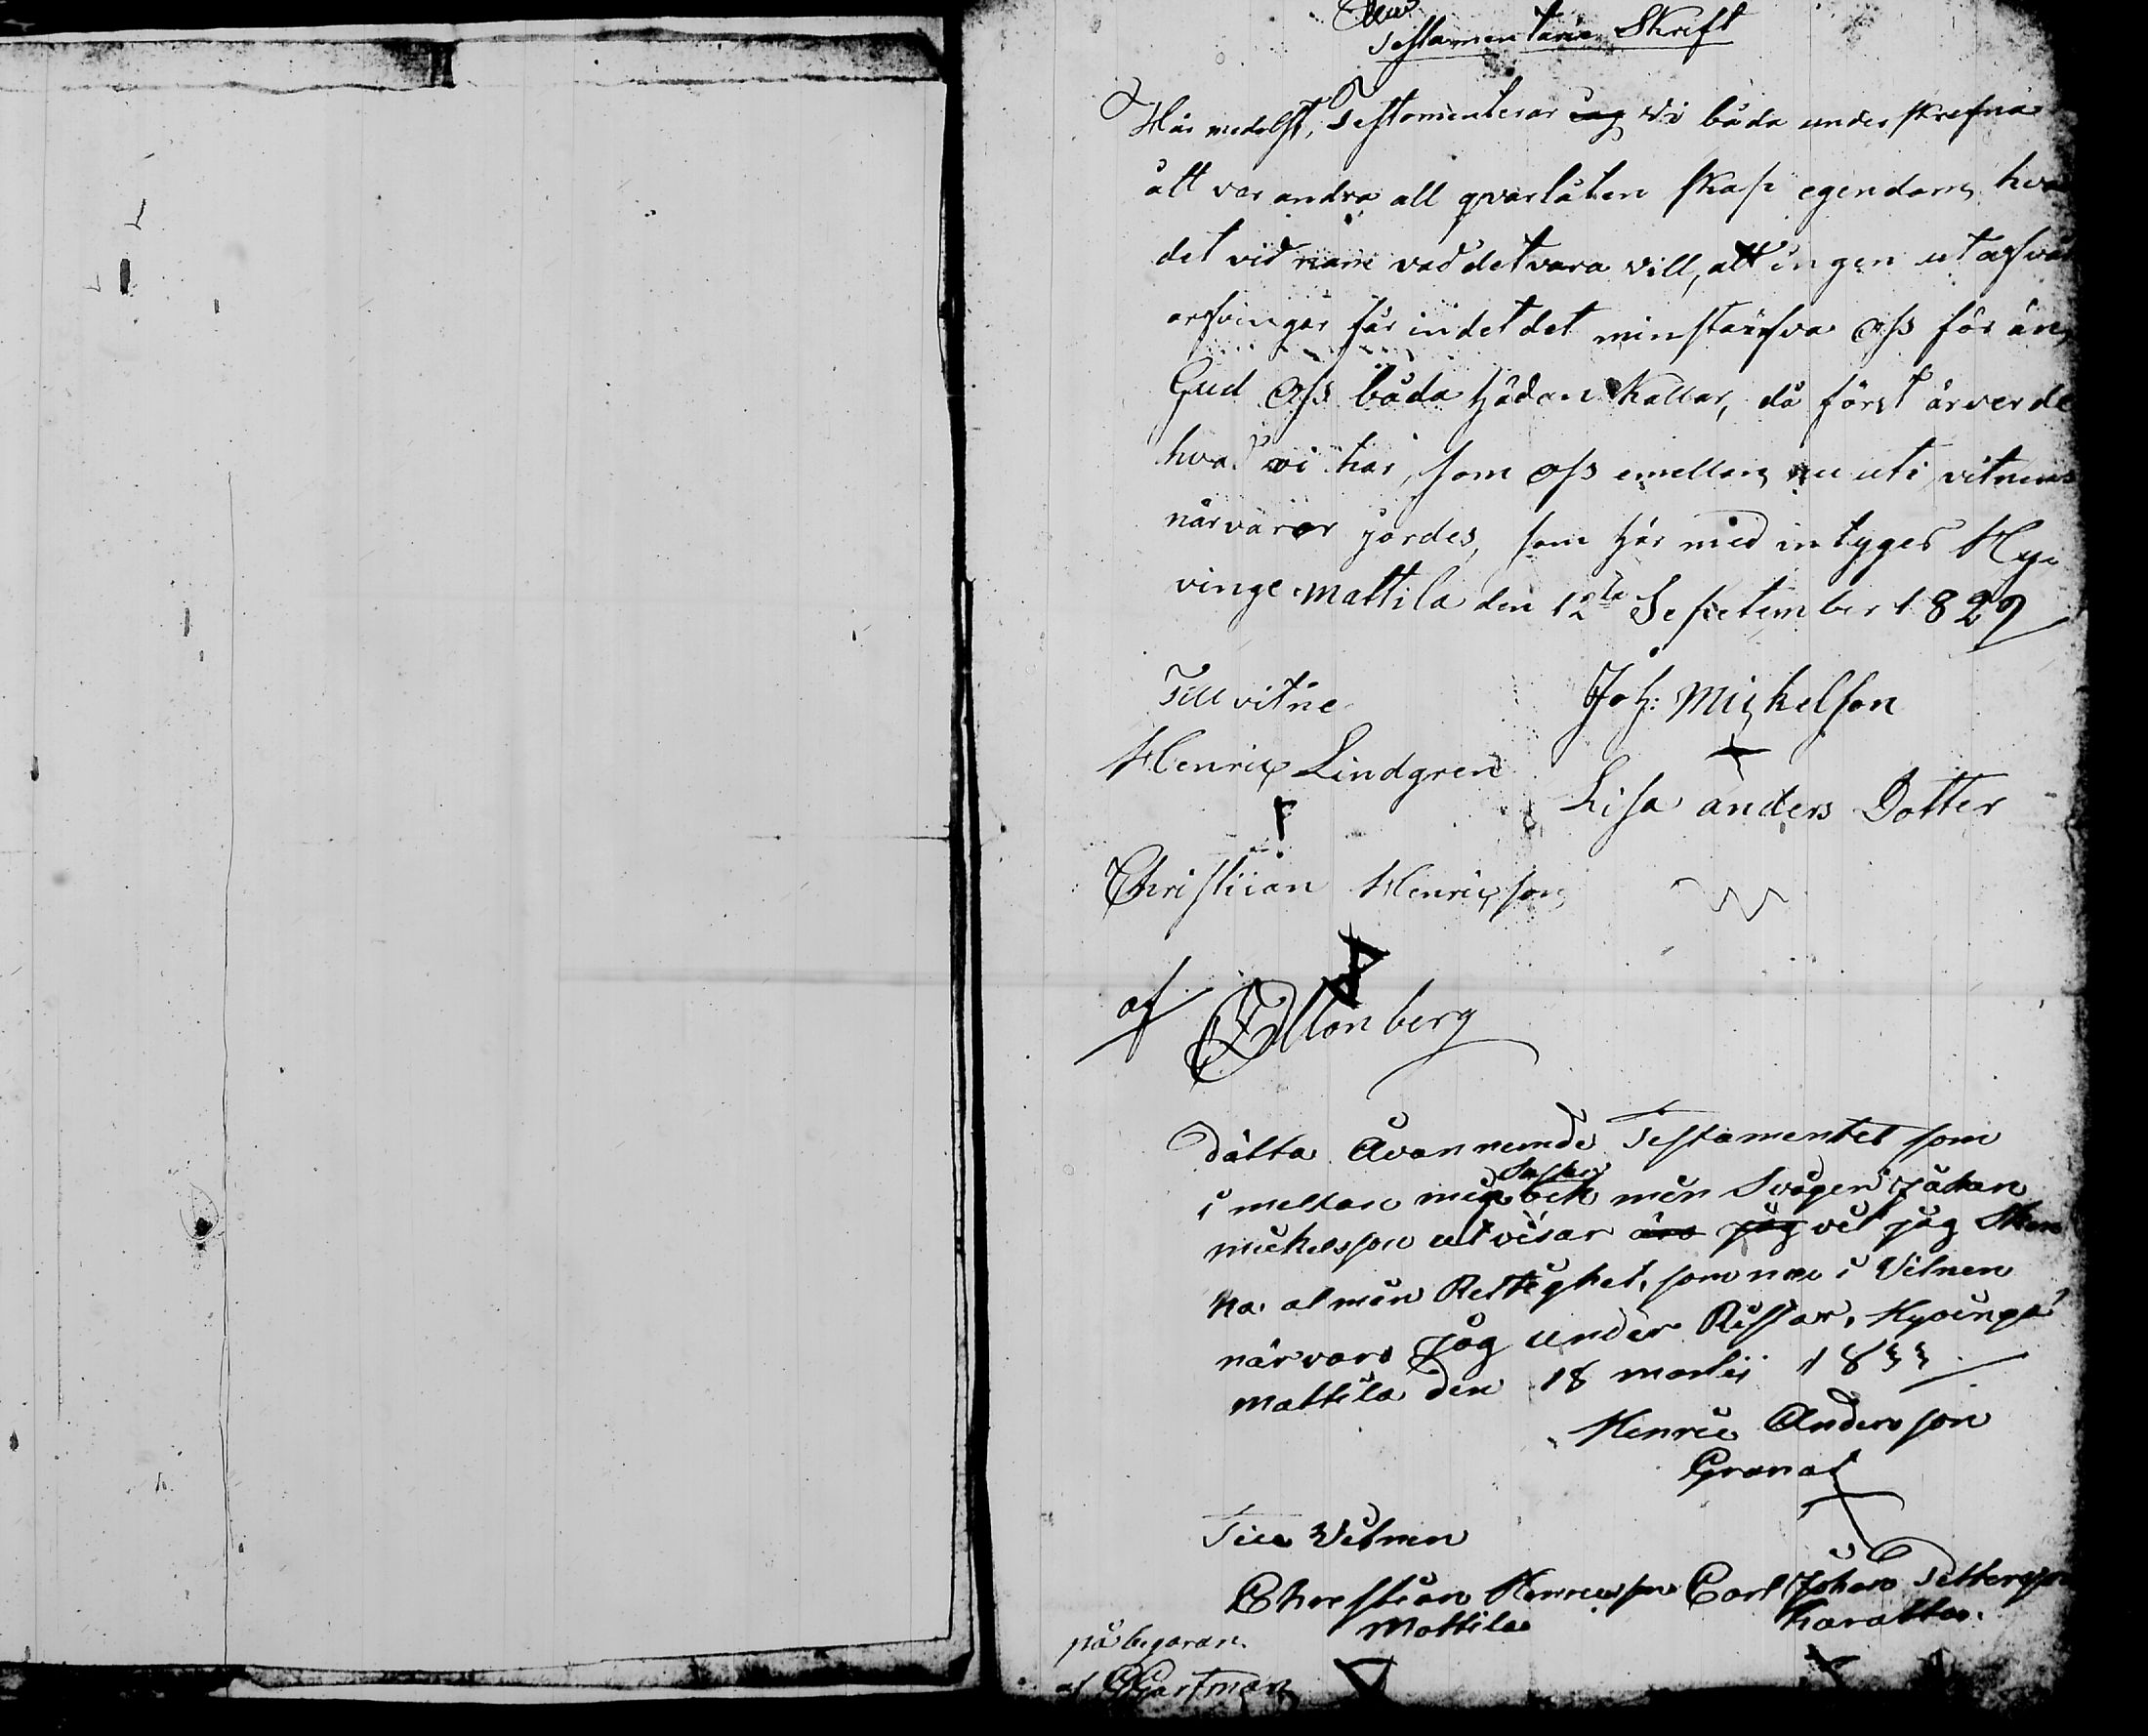 Testamentarie Skrift
Här medelst, Testomenterar jag Vi båda under skrefna
ått var andra all qvarlåten skap egendom, hva
det vid namn vad det vara vill, att ingen ut af vår
arfvingar får in det det minsta ärfva oss för än,
Gud oss båda hädan kallar, då först ärver de
hvad vi har, som oss emellan nu uti vitnens
närvaror jordes, som här med intyges Hy-
vinge mattila den 12te Sepietember 1829
Till vitne
Joh: Mickelson
Henric Lindgren
Lisa anders Dotter
Christiian Henricson
af
Ollonberg
Dätta Åvan nemde Testamentet som
Syster
i mellan mig och min Svåger Johan
mickelsson utvisar äro jag vil jag Sken
ka al min Rettighet, som nu i Vitnen
närvaro jag under Ristar, Hyvinge
Mattila den 18 martii 1833
Henric Andersson
Granat
Till Vitnen
Christian Henricsson Carl Johan Pettersson
Mattila Karatta.
på begäran
af Gartman